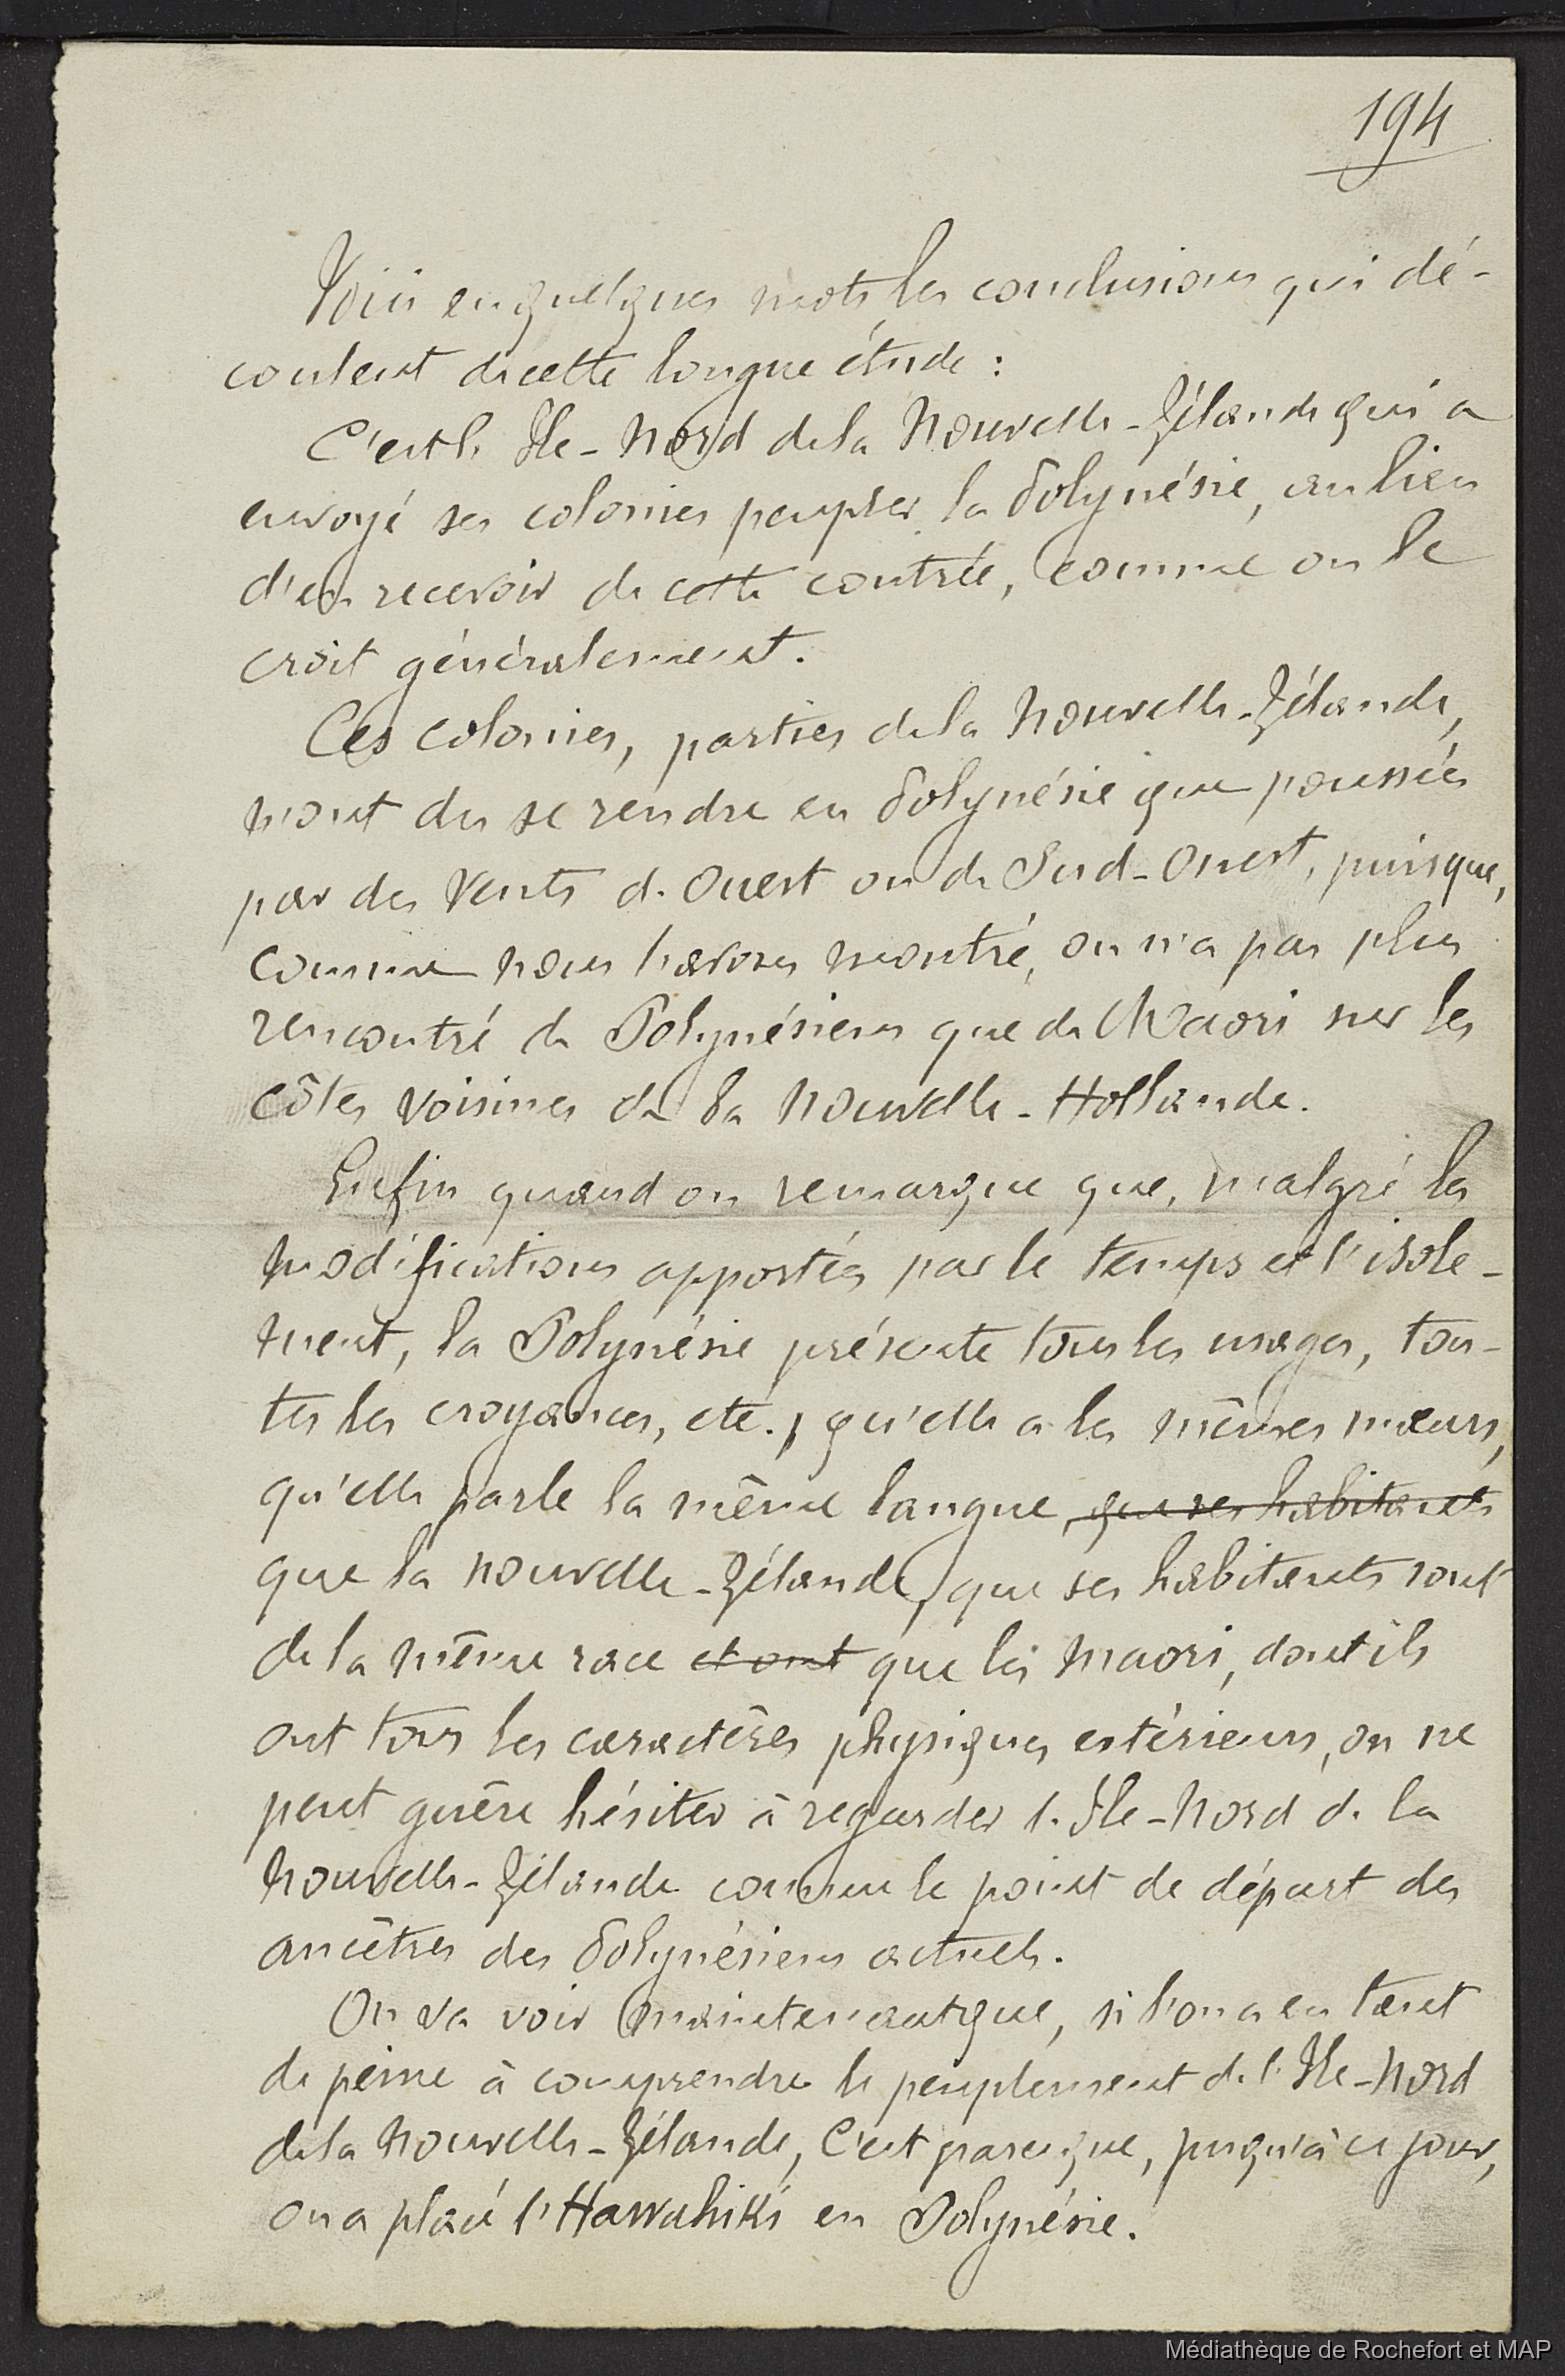 194
Voici en quelques mots les conclusions qui dé-
coulent de cette longue étude :
C'est l'Ile-Nord de la Nouvelle-Zélande qui a
envoyé ses colonies peupler la Polynésie, au lieu
d'en recevoir de cette contrée, comme on le
croit généralement.
Ces colonies, parties de la Nouvelle-Zélande,
n'ont du se rendre en Polynésie que poussées
par des vents d'Ouest ou de Sud-Ouest, puisque,
comme nous l'avons montré, on n'a pas plus
rencontré de Polynésiens que de Maori sur les
côtes voisines de la Nouvelle-Hollande.
Enfin quand on remarque que, malgré les
modifications apportées par le temps et l'isole-
ment, la Polynésie présente tous les usages, tou-
tes les croyances, etc., qu'elle a les mêmes mœurs,
qu'elle parle la même langue, que ses habitants
que la Nouvelle-Zélande, que ses habitants sont
de la même race et ont que les Maori, dont ils
ont tous les caractères physiques extérieurs, on ne
peut guère hésiter à regarder l'Ile-Nord de la
Nouvelle-Zélande comme le point de départ des
ancêtres des Polynésiens actuels.
On va voir maintenant que, si l'on a eu tant
de peine à comprendre le peuplement de l'Ile-Nord
de la Nouvelle-Zélande, c'est parce que, jusqu'à ce jour,
on a placé l'Hawahiki en Polynésie.
Médiathèque de Rochefort et MAP